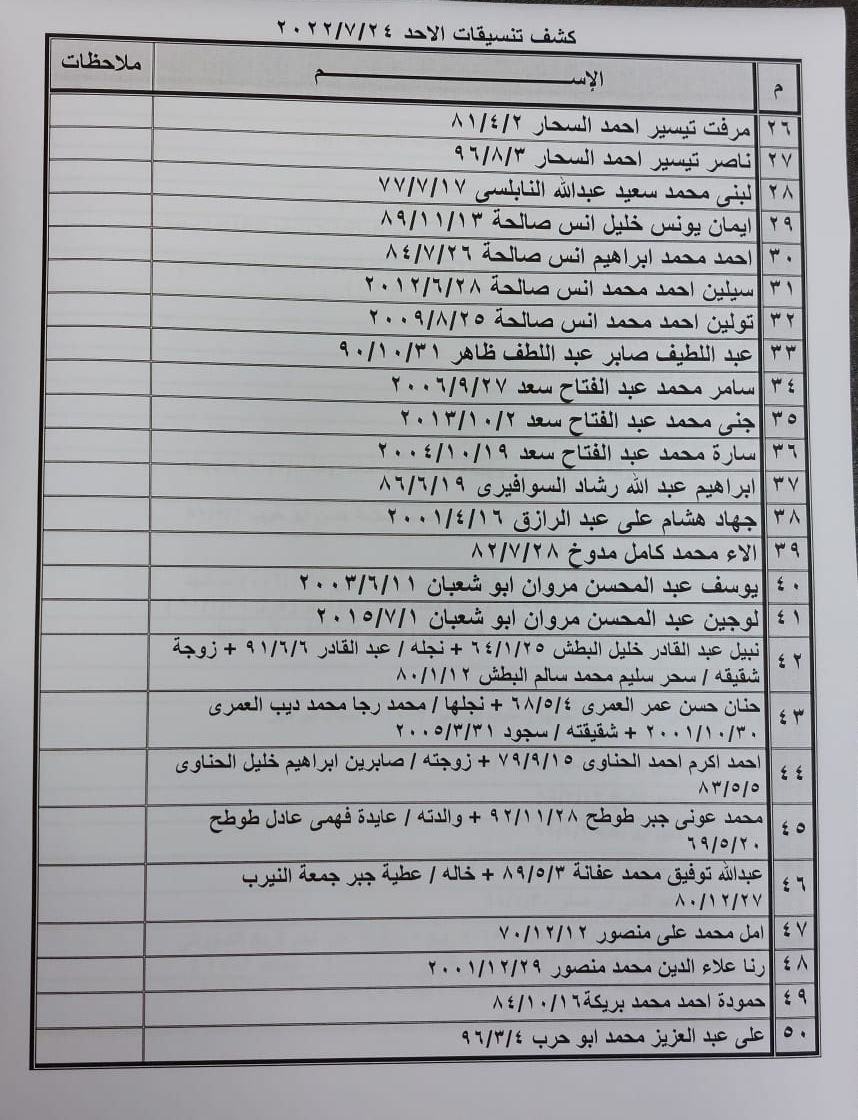 كشف تنسيقات الاحد ٢٠٢٢/٧/٢٤
م الإســـــم ملاحظات
٢٦ مرفت تيسير احمد السحار ٨١/٤/٢
٢٧ ناصر تيسير احمد السحار ٩٦/٨/٣
٢٨ لبنى محمد سعيد عبدالله النابلسى ٧٧/٧/١٧
٢٩ ايمان يونس خليل انس صالحة ٨٩/١١/١٣
٣٠ احمد محمد ابراهيم انس صالحة ٨٤/٧/٢٦
٣١ سيلين احمد محمد انس صالحة ٢٠١٢/٦/٢٨
٣٢ تولين احمد محمد انس صالحة ٢٠٠٩/٨/٢٥
٣٣ عبد اللطيف صابر عبد اللطف ظاهر ٩٠/١٠/٣١
٣٤ سامر محمد عبد الفتاح سعد ٢٠٠٦/٩/٢٧
٣٥ جنى محمد عبد الفتاح سعد ٢٠١٣/١٠/٢
٣٦ سارة محمد عبد الفتاح سعد ٢٠٠٤/١٠/١٩
٣٧ ابراهيم عبد الله رشاد السوافيرى ٨٦/٦/١٩
٣٨ جهاد هشام على عبد الرازق ٢٠٠١/٤/١٦
٣٩ الاء محمد كامل مدوخ ٨٢/٧/٢٨
٤٠ يوسف عبد المحسن مروان ابو شعبان ٢٠٠٣/٦/١١
٤١ لوجين عبد المحسن مروان ابو شعبان ٢٠١٥/٧/١
٤٢ نبيل عبد القادر خليل البطش ٦٤/١/٢٥ + نجله / عبد القادر ٩١/٦/٦ + زوجة
شقيقه / سحر سليم محمد سالم البطش ٨٠/١/١٢
٤٣ حنان حسن عمر العمرى ٦٨/٥/٤ + نجلها / محمد رجا محمد ديب العمرى
٢٠٠١/١٠/٣٠ + شقيقته / سجود ٢٠٠٥/٣/٣١
٤٤ احمد اكرم احمد الحناوى ٧٩/٩/١٥ + زوجته / صابرين ابراهيم خليل الحناوى
٨٣/٥/٥
٤٥ محمد عونى جبر طوطح ٩٢/١١/٢٨ + والدته / عايدة فهمى عادل طوطح
٦٩/٥/٢٠
٤٦ عبدالله توفيق محمد عفانة ٨٩/٥/٣ + خاله / عطية جبر جمعة النيرب
٨٠/١٢/٢٧
٤٧ امل محمد على منصور ٧٠/١٢/١٢
٤٨ رنا علاء الدين محمد منصور ٢٠٠١/١٢/٢٩
٤٩ حمودة احمد محمد بريكة ٨٤/١٠/١٦
٥٠ على عبد العزيز محمد ابو حرب ٩٦/٣/٤